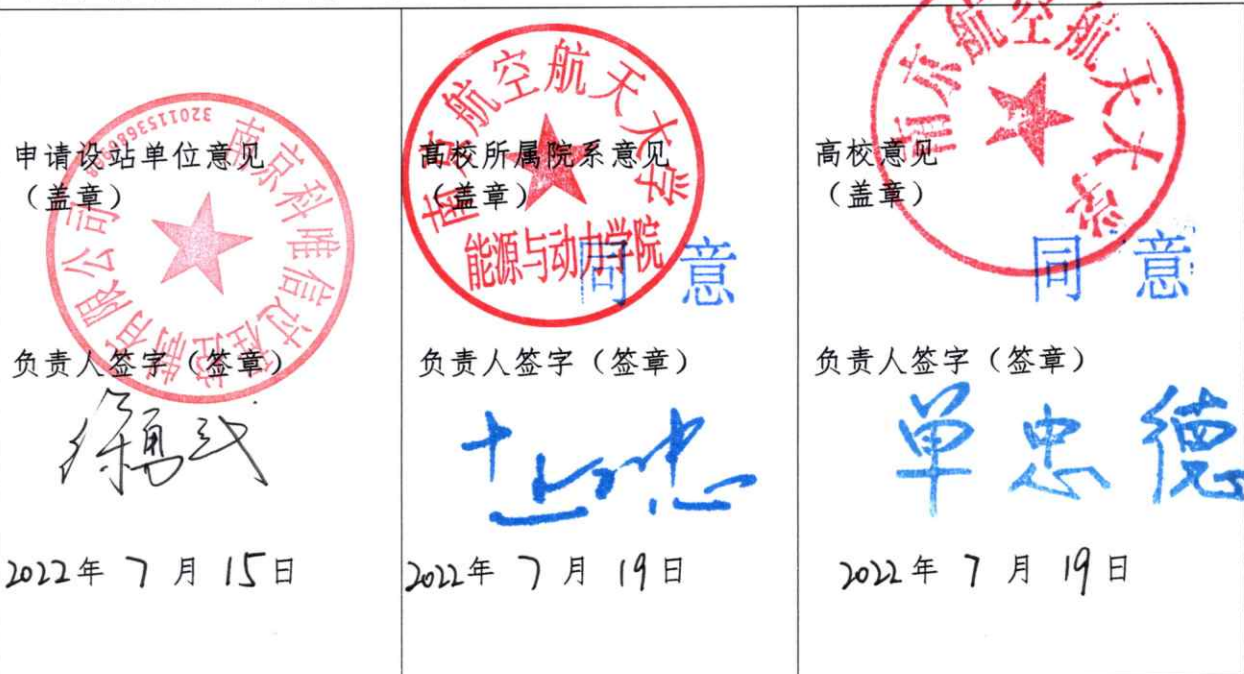 申请设站单位意见
（盖章）
南京科唯信过程控制有限公司
负责人签字（签章）
徐勇武
2022年 7 月 15日
高校所属院系意见
（盖章）
南京航空航天大学
能源与动力学院
同 意
负责人签字（签章）
2022年 7 月 19日
高校意见
（盖章）
南京航空航天大学
同 意
负责人签字（签章）
单忠德
2022年 7 月 19日